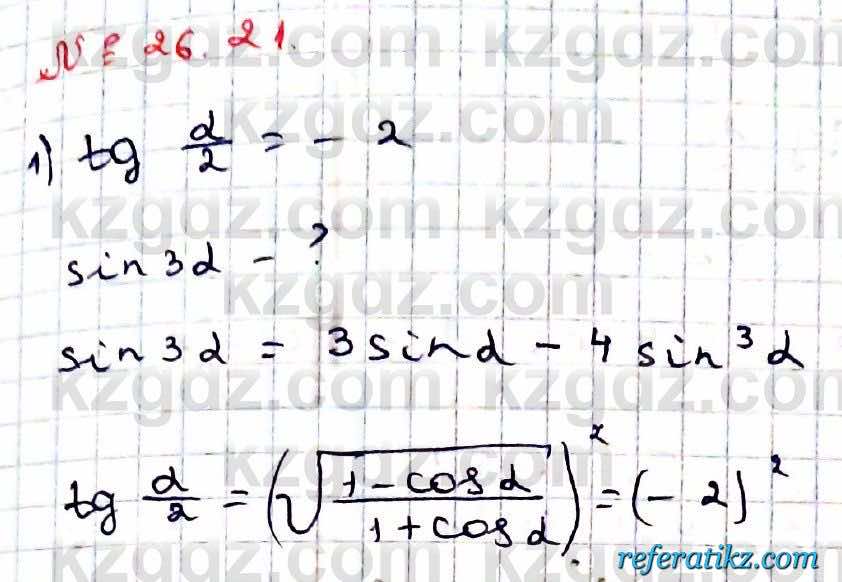 № 26.21.
1) tg α/2 = - 2
sin 3α - ?
sin 3α = 3 sin α - 4 sin³ α
tg α/2 = (√((1 - cos α)/(1 + cos α)))² = (- 2)²
kzgdz.com
referatikz.com